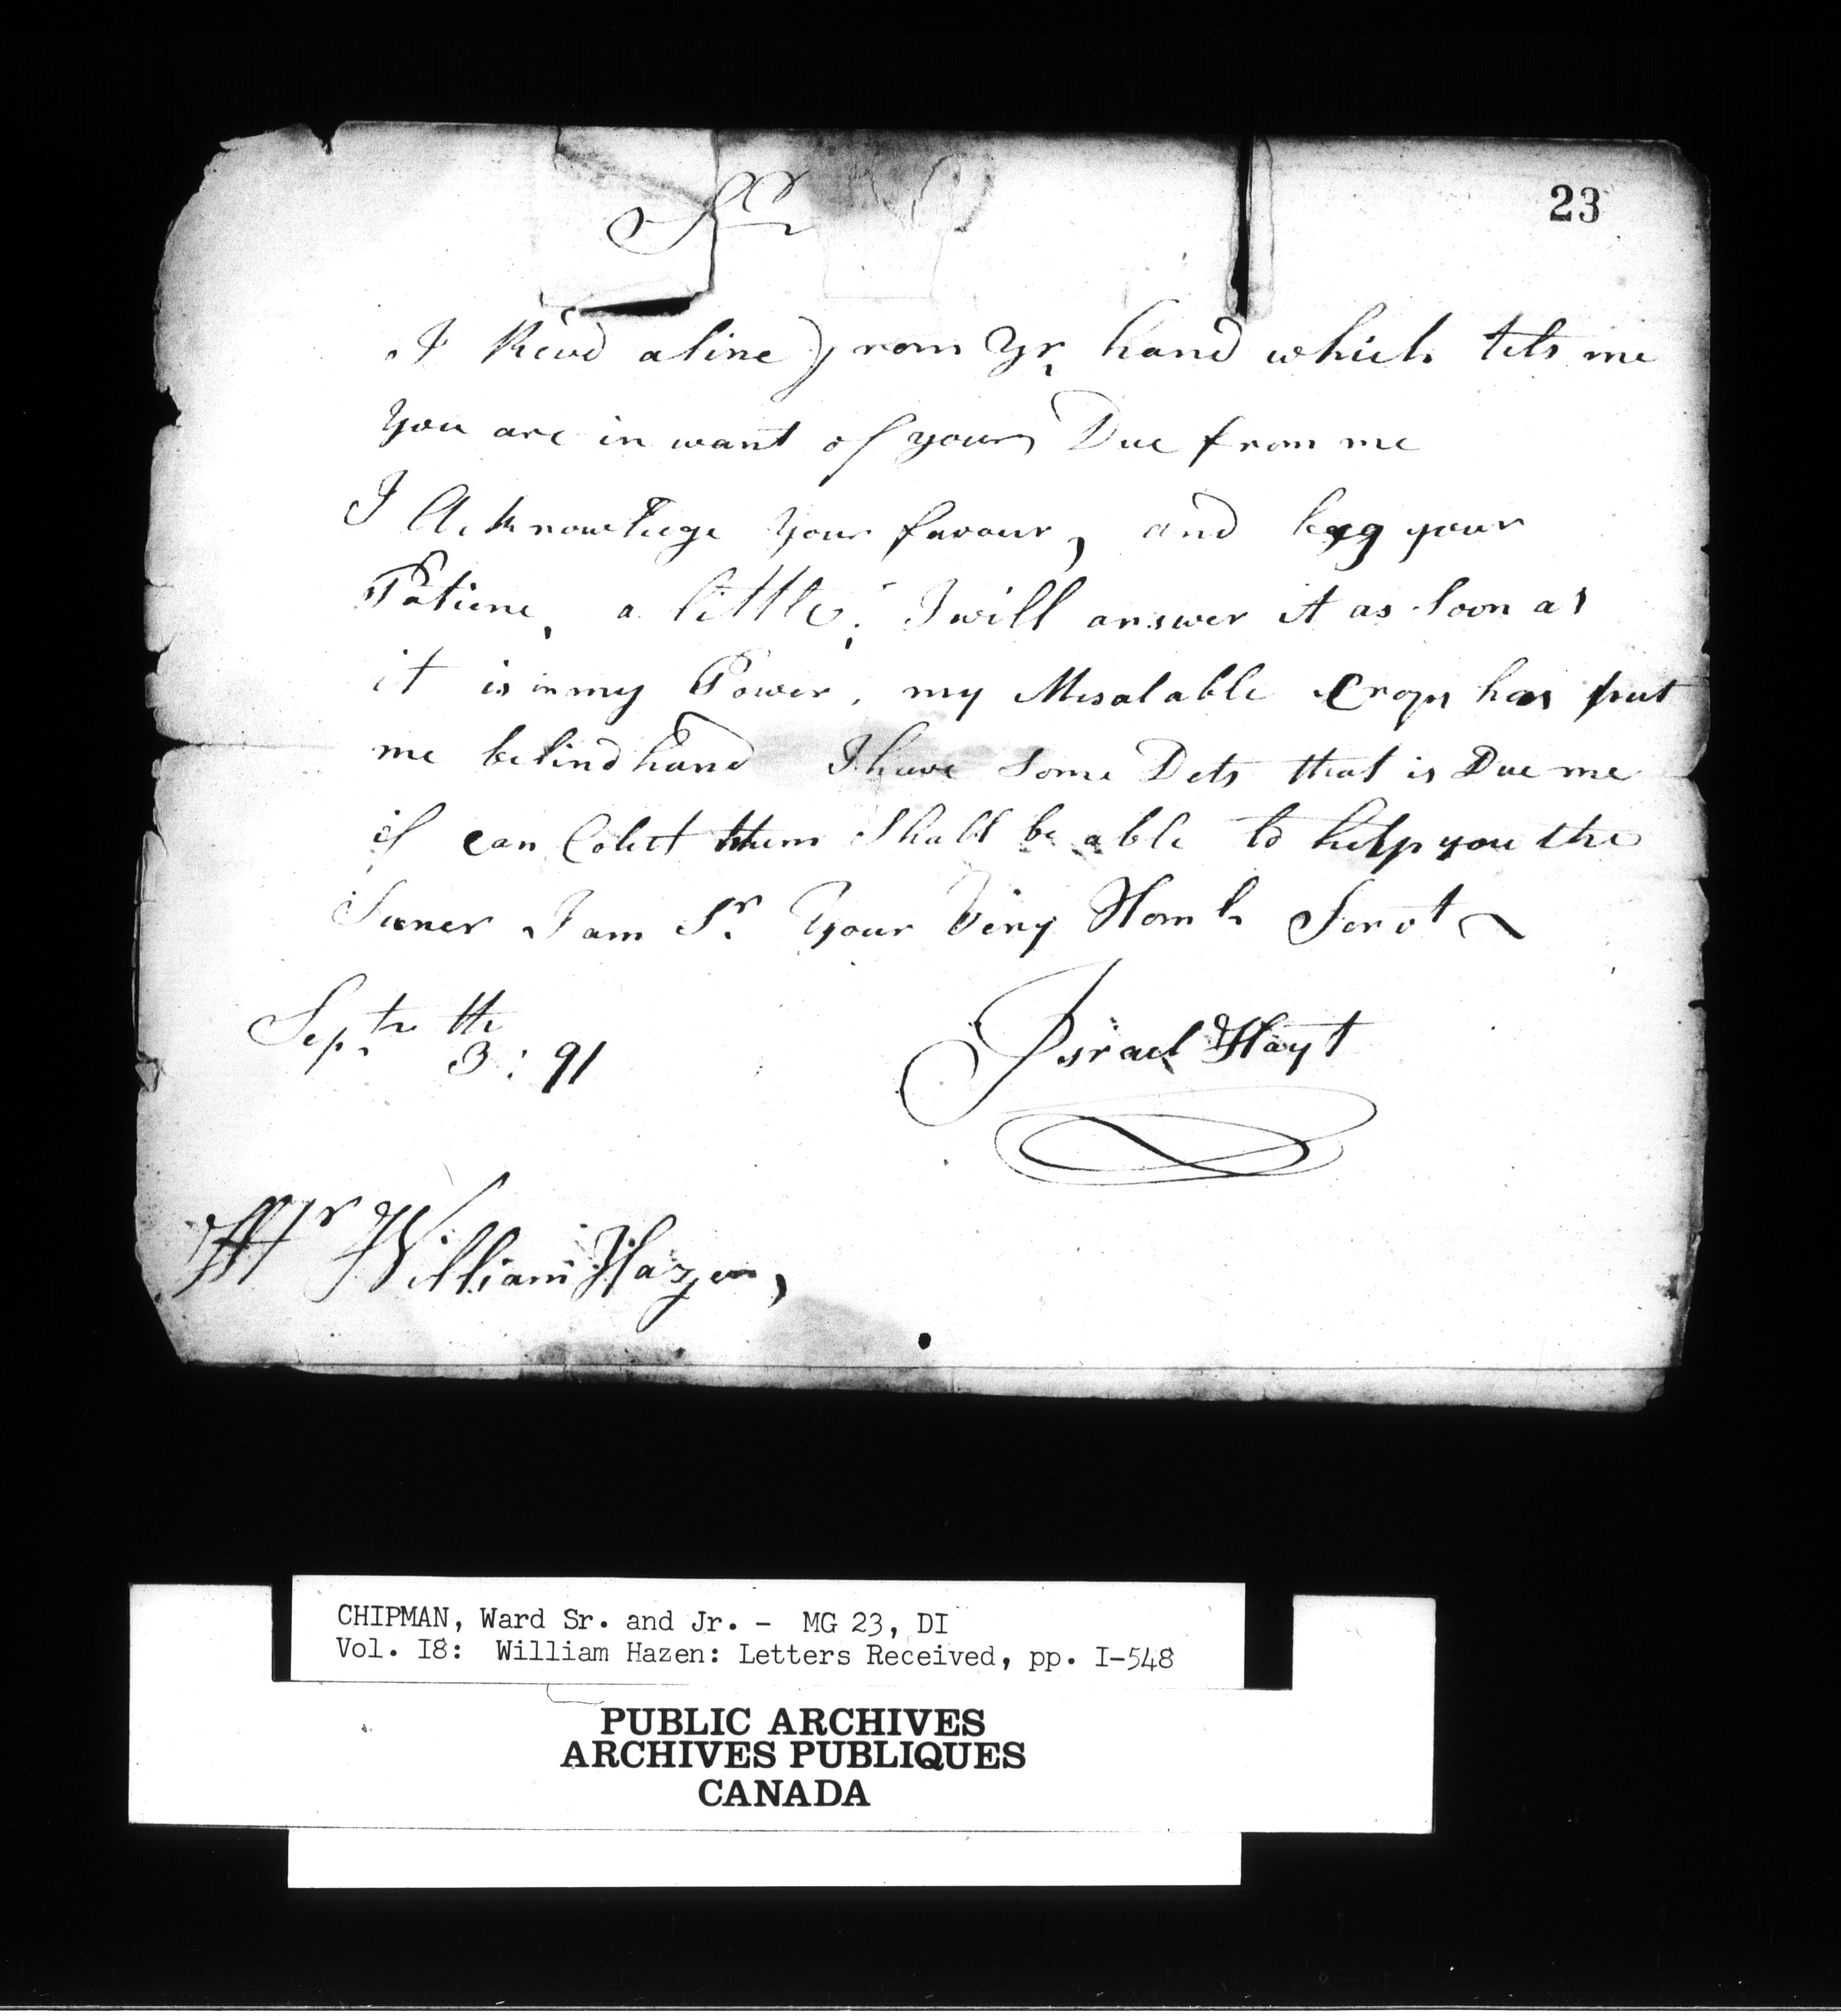 23
Sr
I Recvd a line from Yr hand which tels me
You are in want of your Due from me
I Acknowledge Your favour, and beg your
Patienc, a little; I will answer it as Soon as
it is in my Power, my Misalable Crops has put
me behind hand I have Some Dets that is Due me
if can Colect them Shall be able to help you the
Suner I am Sr. Your Very Homb Servt
Septr the
3: 91
Israel Hayt
Mr William Hazen,
CHIPMAN, Ward Sr. and Jr. - MG 23, DI
Vol. I8: William Hazen: Letters Received, pp. I-548
PUBLIC ARCHIVES
ARCHIVES PUBLIQUES
CANADA